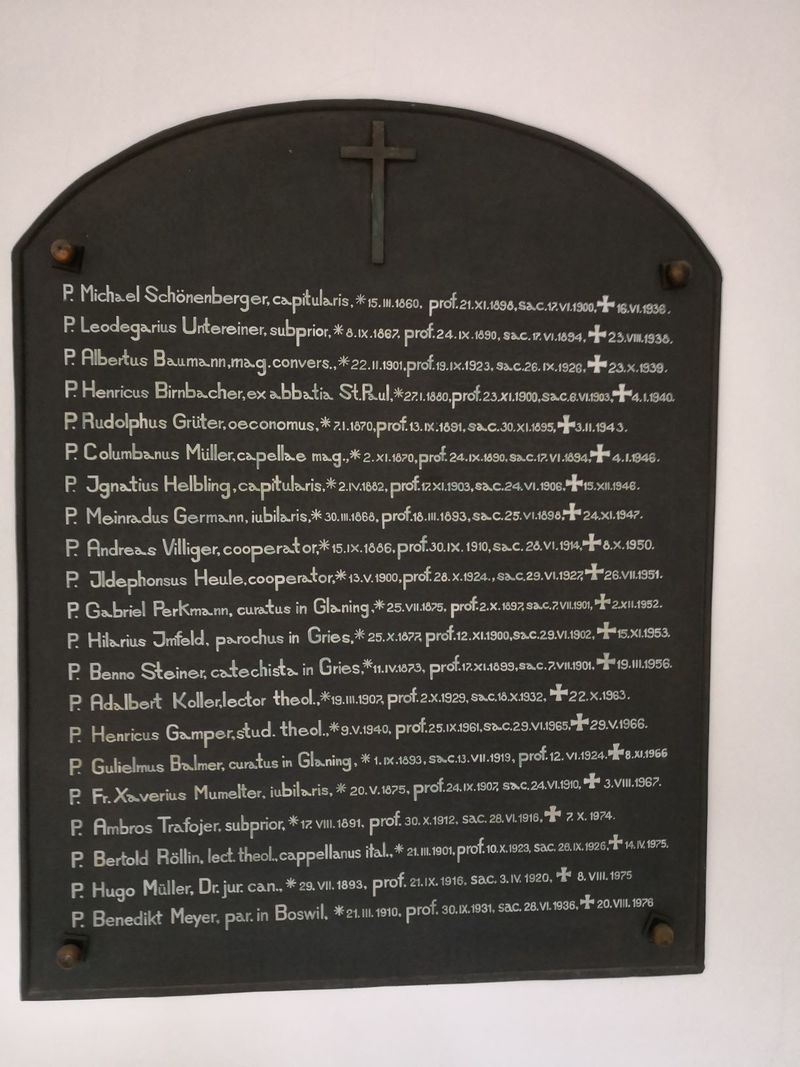 P. Michael Schönenberger, capitularis, *15.III.1860, prof. 21.XI.1898, sac. 17.VI.1900, ✠ 16.VI.1936.
P. Leodegarius Untereiner, subprior, *8.IX.1867, prof. 24.IX.1890, sac. 17.VI.1894, ✠ 23.VIII.1938.
P. Albertus Baumann, mag. convers., *22.11.1901, prof. 19.IX.1923, sac. 26.IX.1926, ✠ 23.X.1939.
P. Henricus Birnbacher, ex abbatia St. Paul, *27.I.1880, prof. 23.XI.1900, sac. 6.VI.1903, ✠ 4.I.1940.
P. Rudolphus Grüter, oeconomus, *7.I.1870, prof. 13.IX.1891, sac. 30.XI.1895, ✠ 3.II.1943.
P. Columbanus Müller, capellae mag., *2.XI.1870, prof. 24.IX.1890, sac. 17.VI.1894, ✠ 4.I.1946.
P. Jgnatius Helbling, capitularis, *2.IV.1882, prof. 17.XI.1903, sac. 24.VI.1906, ✠ 15.XII.1946.
P. Meinradus Germann, iubilaris, *30.III.1868, prof. 18.III.1893, sac. 25.VI.1898, ✠ 24.XI.1947.
P. Andreas Villiger, cooperator, *15.IX.1886, prof. 30.IX.1910, sac. 28.VI.1914, ✠ 8.X.1950.
P. Jldephonsus Heule, cooperator, *13.V.1900, prof. 28.X.1924., sac. 29.VI.1927, ✠ 26.VII.1951.
P. Gabriel Perkmann, curatus in Glaning, *25.VII.1875, prof. 2.X.1897, sac. 7.VII.1901, ✠ 2.XII.1952.
P. Hilarius Jmfeld, parochus in Gries, *25.X.1877, prof. 12.XI.1900, sac. 29.VI.1902, ✠ 15.XI.1953.
P. Benno Steiner, catechista in Gries, *11.IV.1873, prof. 17.XI.1899, sac. 7.VII.1901, ✠ 19.III.1956.
P. Adalbert Koller, lector theol., *19.III.1907, prof. 2.X.1929, sac. 18.X.1932, ✠ 22.X.1963.
P. Henricus Gamper, stud. theol., *9.V.1940, prof. 25.IX.1961, sac. 29.VI.1965, ✠ 29.V.1966.
P. Gulielmus Balmer, curatus in Glaning, *1.IX.1893, sac. 13.VII.1919, prof. 12.VI.1924, ✠ 8.XI.1966
P. Fr. Xaverius Mumelter, iubilaris, *20.V.1875, prof. 24.IX.1907, sac. 24.VI.1910, ✠ 3.VIII.1967.
P. Ambros Trafojer, subprior, *17.VIII.1891, prof. 30.X.1912, sac. 28.VI.1916, ✠ 7.X.1974.
P. Bertold Röllin, lect. theol., cappellanus ital., *21.III.1901, prof. 10.X.1923, sac. 26.IX.1926, ✠ 14.IV.1975.
P. Hugo Müller, Dr. jur. can., *29.VII.1893, prof. 21.IX.1916, sac. 3.IV.1920, ✠ 8.VIII.1975
P. Benedikt Meyer, par. in Boswil, *21.III.1910, prof. 30.IX.1931, sac. 28.VI.1936, ✠ 20.VIII.1976